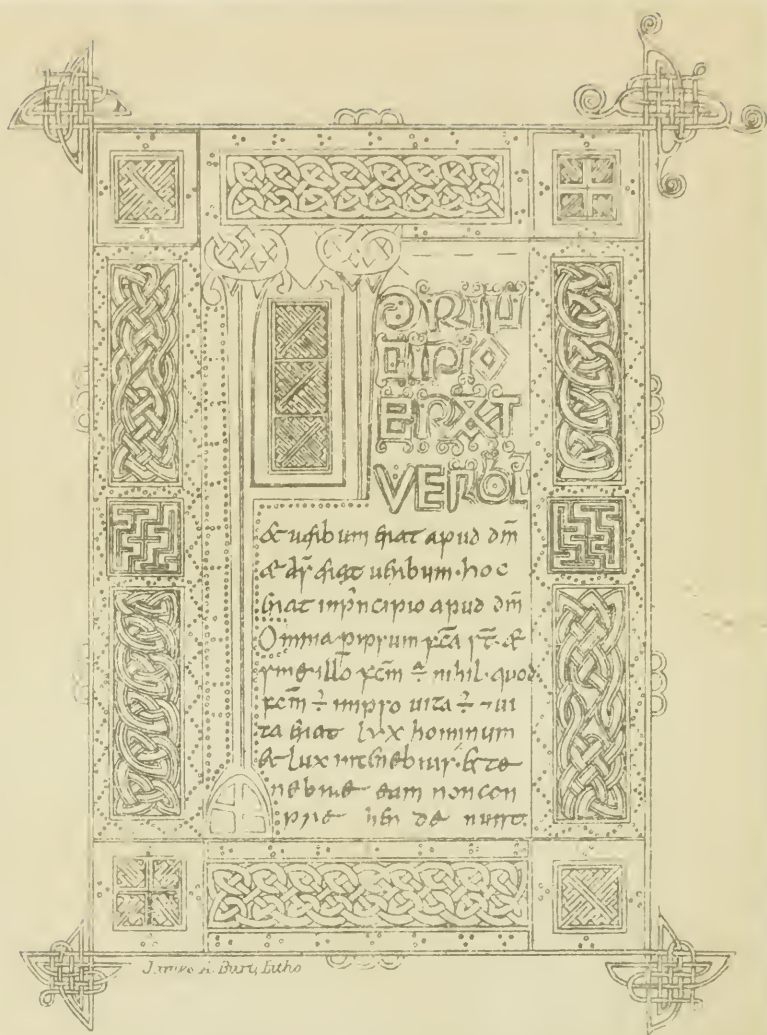 IN PRIN
CIPIO
ERAT
VERBU
& uerbum erat apud dm̄
& ds̄ erat uerbum·hoc
erat inprincipio apud dm̄
Omnia p ipsum fc̄a st̄·&
sine illo fcm̄ ÷ nihil·quod
fcm̄ ÷ inipso uita ÷ ⁊ ui
ta erat lux hominum
& lux intenebris·& te
nebrae eam non con
prae hen de runt.
James A. Burt, Litho